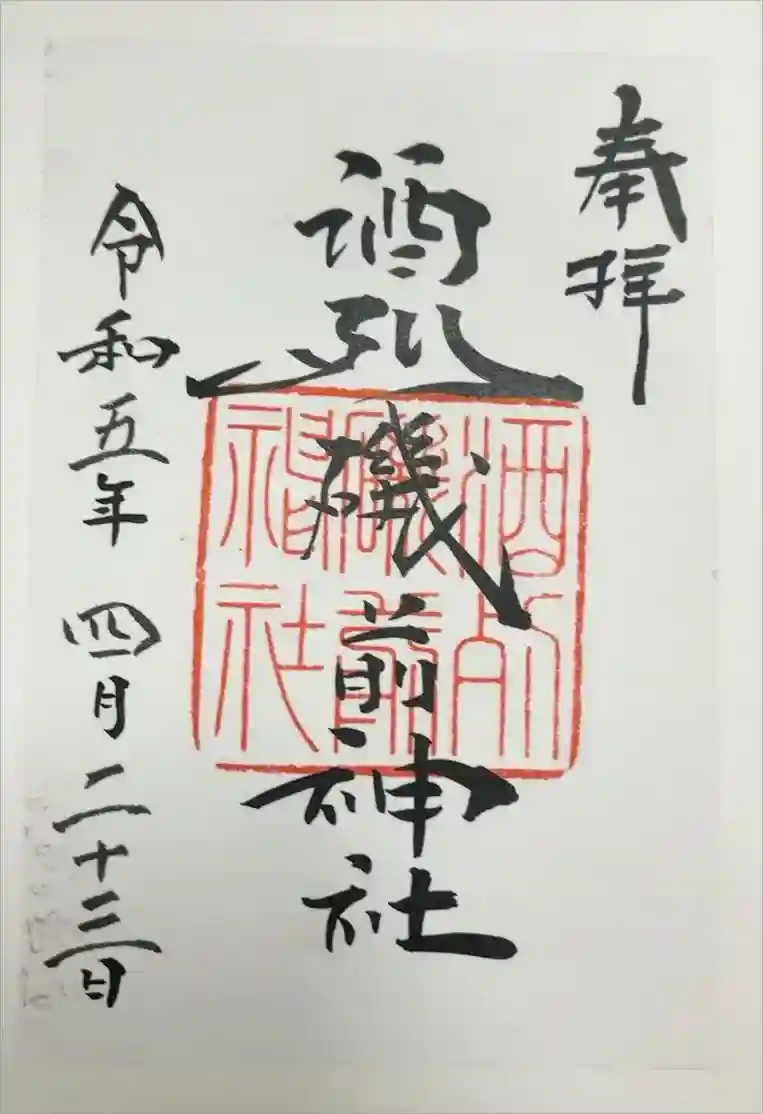 奉拝
酒列磯前神社
令和五年 四月二十三日
酒列
磯前
神社